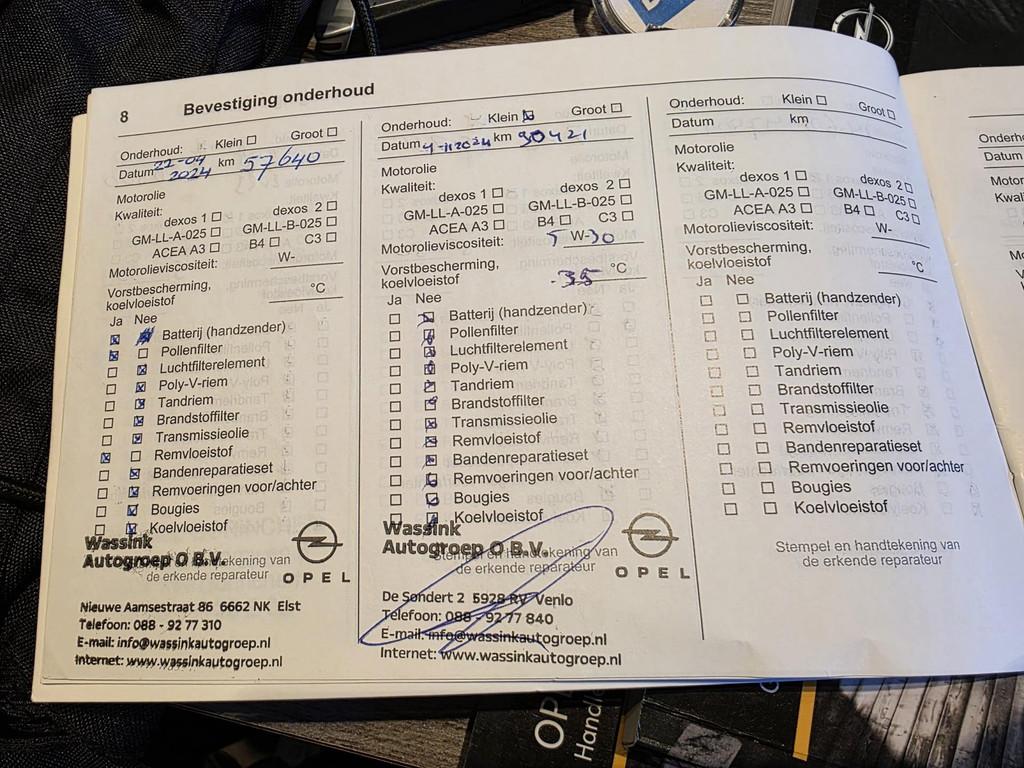 8 Bevestiging onderhoud
Onderhoud: Klein Groot
Datum 22-04 2024 km 57640
Motorolie
Kwaliteit:
dexos 1 dexos 2
GM-LL-A-025 GM-LL-B-025
ACEA A3 B4 C3
Motorolieviscositeit: W-
Vorstbescherming,
koelvloeistof °C
Ja Nee
Batterij (handzender)
Pollenfilter
Luchtfilterelement
Poly-V-riem
Tandriem
Brandstoffilter
Transmissieolie
Remvloeistof
Bandenreparatieset
Remvoeringen voor/achter
Bougies
Koelvloeistof
Wassink
Autogroep O B.V.
Stempel en handtekening van
de erkende reparateur
OPEL
Nieuwe Aamsestraat 86 6662 NK Elst
Telefoon: 088 - 92 77 310
E-mail: info@wassinkautogroep.nl
Internet: www.wassinkautogroep.nl
Onderhoud: Klein Groot
Datum 4-11-2024 km 90421
Motorolie
Kwaliteit:
dexos 1 dexos 2
GM-LL-A-025 GM-LL-B-025
ACEA A3 B4 C3
Motorolieviscositeit: 5 W-30
Vorstbescherming,
koelvloeistof -35 °C
Ja Nee
Batterij (handzender)
Pollenfilter
Luchtfilterelement
Poly-V-riem
Tandriem
Brandstoffilter
Transmissieolie
Remvloeistof
Bandenreparatieset
Remvoeringen voor/achter
Bougies
Koelvloeistof
Wassink
Autogroep O B.V.
Stempel en handtekening van
de erkende reparateur
OPEL
De Sondert 2 5928 RV Venlo
Telefoon: 088 - 92 77 840
E-mail: info@wassinkautogroep.nl
Internet: www.wassinkautogroep.nl
Onderhoud: Klein Groot
Datum km
Motorolie
Kwaliteit:
dexos 1 dexos 2
GM-LL-A-025 GM-LL-B-025
ACEA A3 B4 C3
Motorolieviscositeit: W-
Vorstbescherming,
koelvloeistof °C
Ja Nee
Batterij (handzender)
Pollenfilter
Luchtfilterelement
Poly-V-riem
Tandriem
Brandstoffilter
Transmissieolie
Remvloeistof
Bandenreparatieset
Remvoeringen voor/achter
Bougies
Koelvloeistof
Stempel en handtekening van
de erkende reparateur
Onderh
Datum
Motor
Kwal
OP
Hand